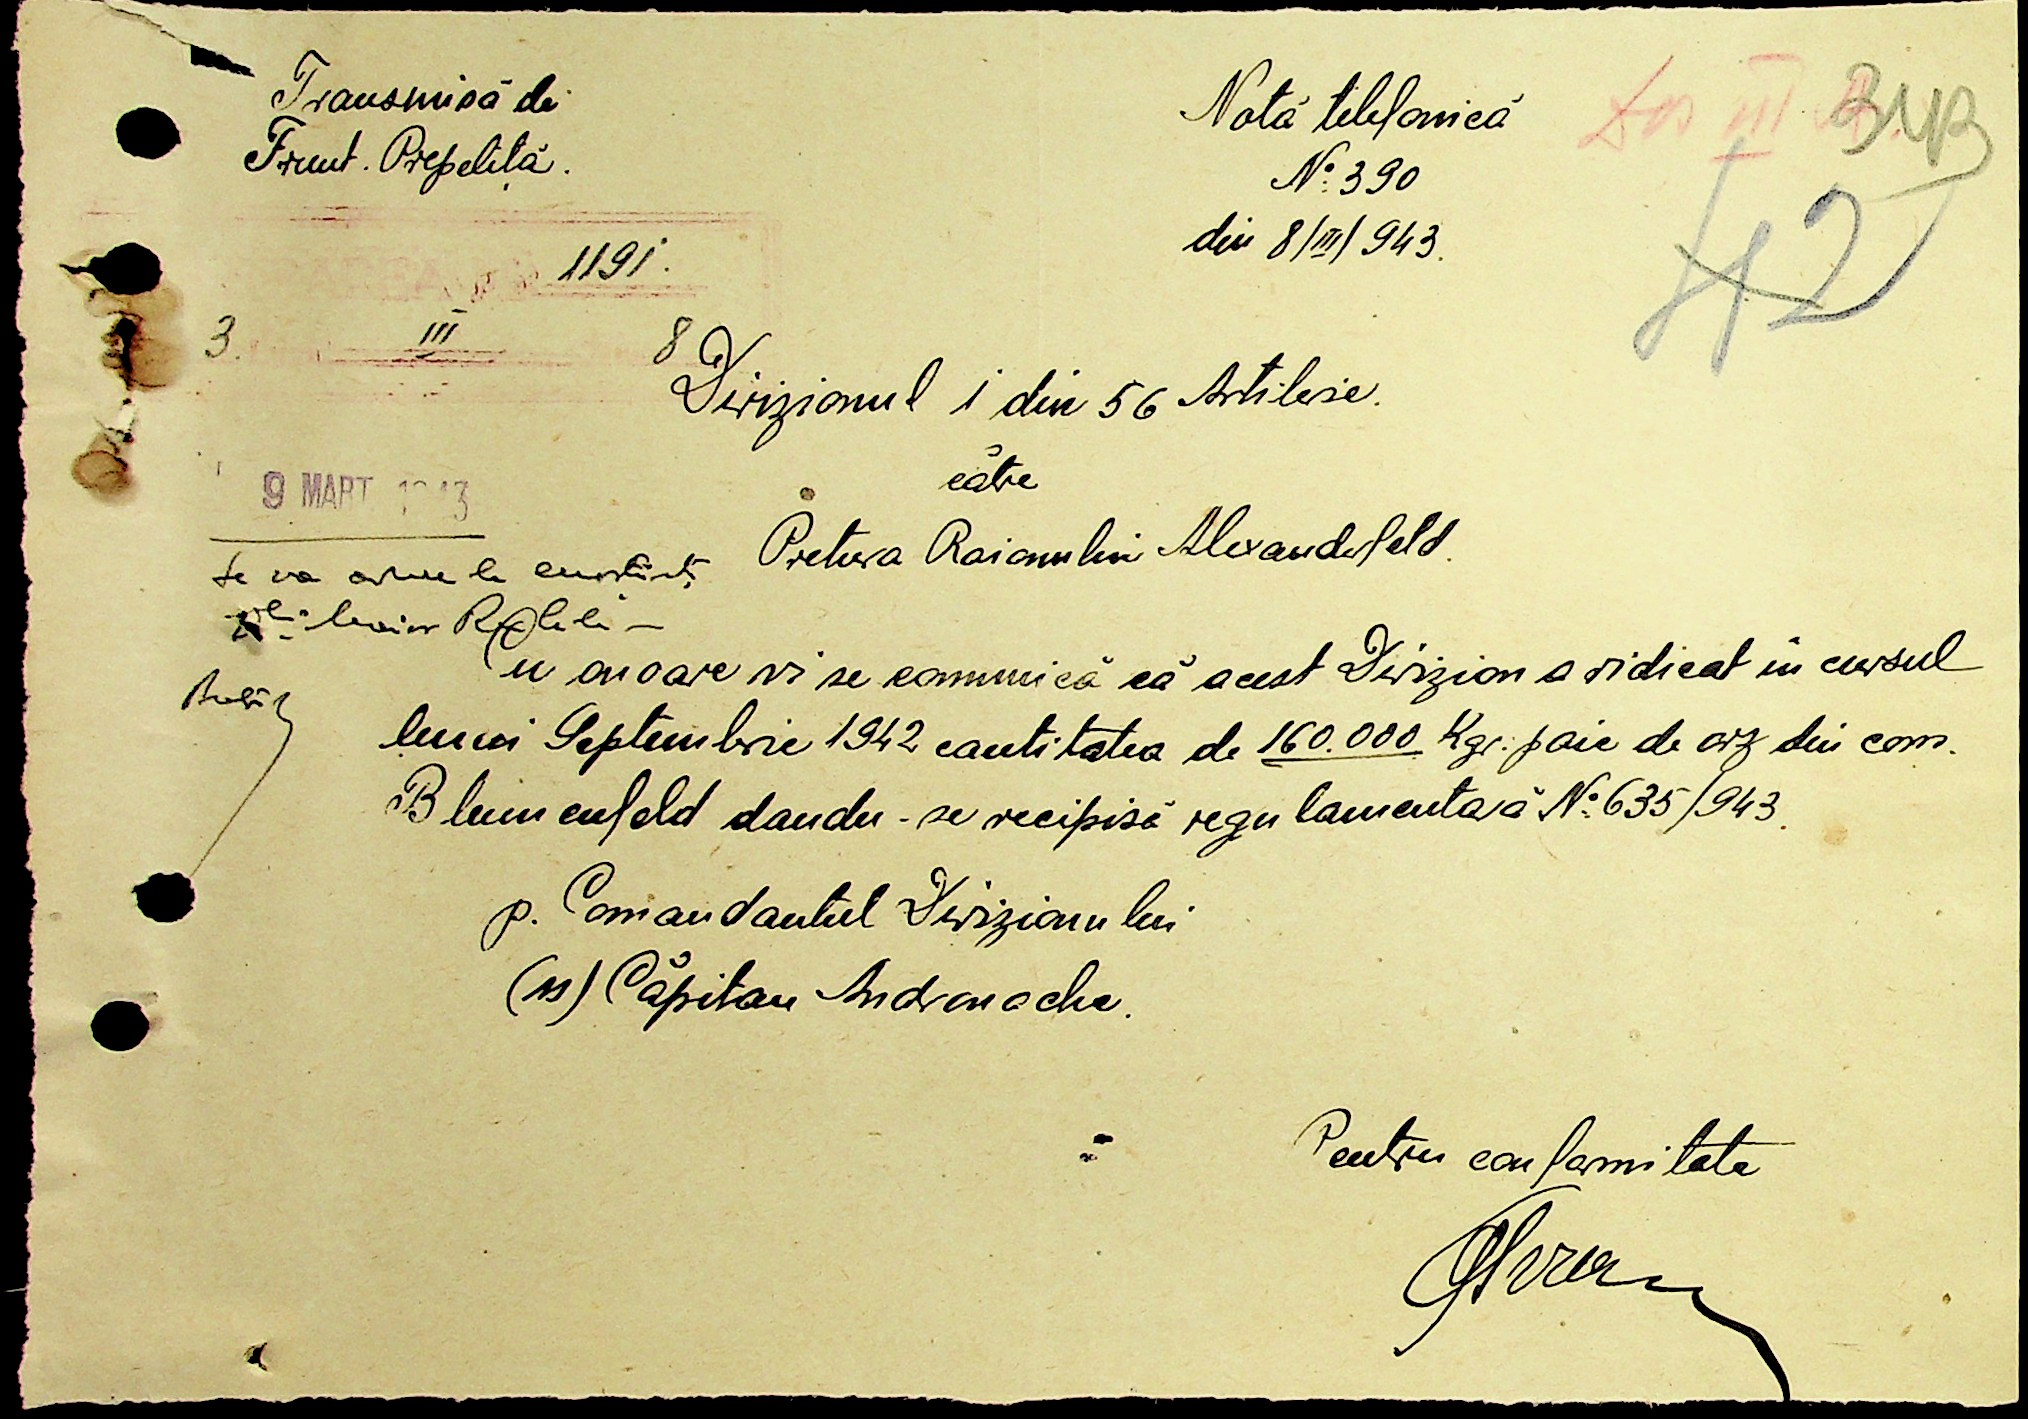 Transmisă de
Frunt. Prepeliță.
Notă telefonică
No. 390
din 8/III/943.
1191.
3. III 8
Divizionul I din 56 Artilerie.
către
Pretura Raionului Alexanderfeld.
9 MART 1943
Se va
Cu onoare vi se comunică că acest Divizion a ridicat în cursul
lunei Septembrie 1942 cantitatea de 160.000 Kgr. paie de orz din com.
Blumenfeld dandu-se recipisă regulamentară No. 635/943.
p. Comandantul Divizionului
(ss) Căpitan Andronache.
Pentru conformitate